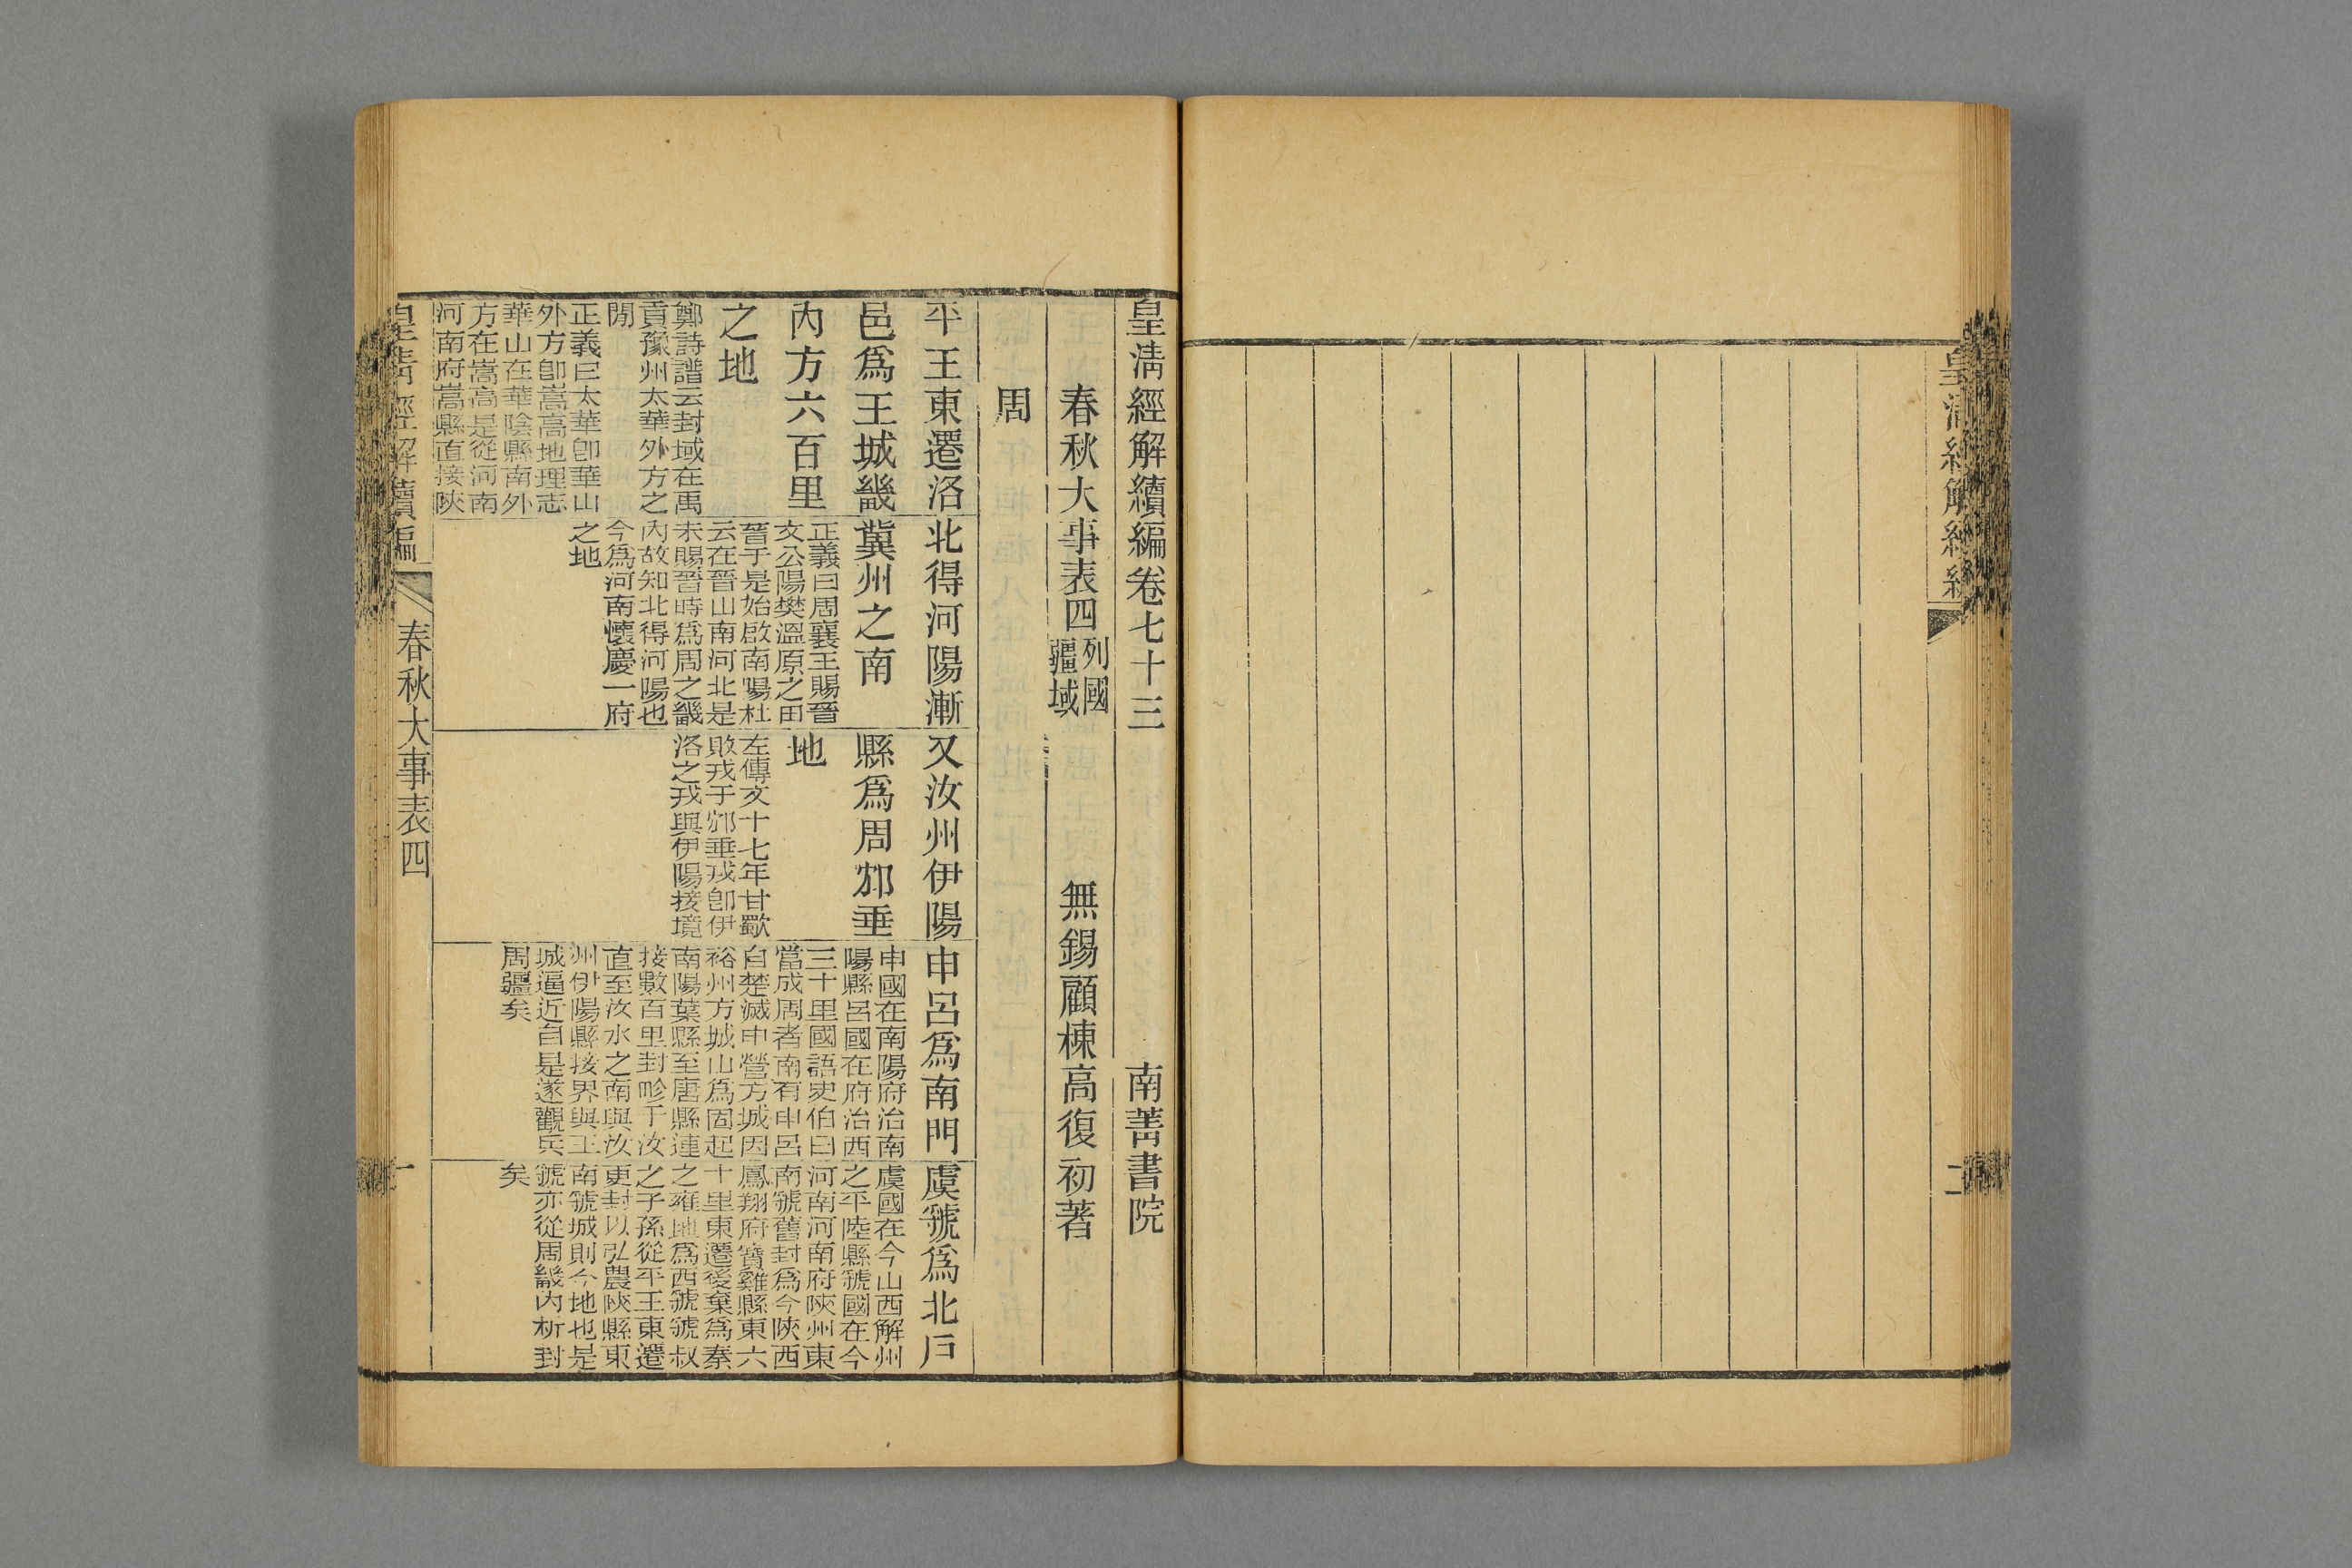 皇清經解續編
二
皇清經解續編卷七十三
南菁書院
春秋大事表四
列國
疆域
無錫顧棟高復初著
周
平王東遷洛
邑爲王城畿
內方六百里
之地
鄭詩譜云封域在禹
貢豫州太華外方之
閒
正義曰太華卽華山
外方卽嵩高地理志
華山在華陰縣南外
方在嵩高是從河南
河南府嵩縣直接陝
北得河陽漸
冀州之南
正義曰周襄王賜晉
文公陽樊溫原之田
晉于是始啟南陽杜
云在晉山南河北是
未賜晉時爲周之畿
內故知北得河陽也
今爲河南懷慶一府
之地
又汝州伊陽
縣爲周邥垂
地
左傳文十七年甘歜
敗戎于邥垂戎卽伊
洛之戎與伊陽接境
申呂爲南門
申國在南陽府治南
陽縣呂國在府治西
三十里國語史伯曰
當成周者南有申呂
自楚滅申營方城因
裕州方城山爲固起
南陽葉縣至唐縣連
接數百里封畛于汝
直至汝水之南與汝
州伊陽縣接界與王
城逼近自是遂觀兵
周疆矣
虞虢爲北戶
虞國在今山西解州
之平陸縣虢國在今
河南河南府陝州東
南虢舊封爲今陝西
鳳翔府寶雞縣東六
十里東遷後棄爲秦
之雍地爲西虢虢叔
之子孫從平王東遷
更封以弘農陝縣東
南虢城則今地也是
虢亦從周畿內析封
矣
皇清經解續編
春秋大事表四
一